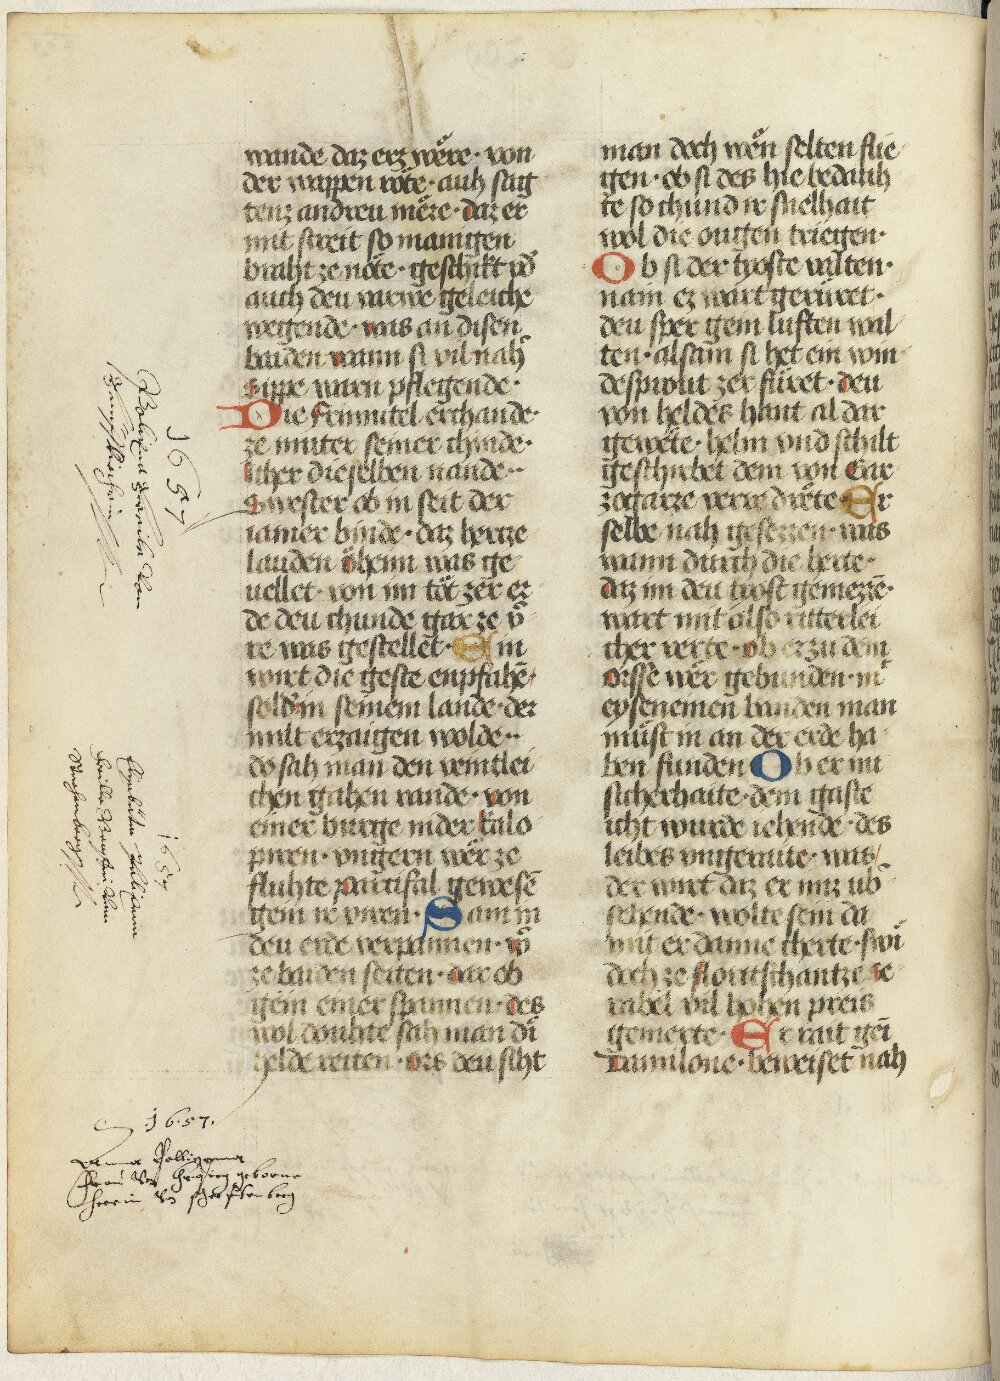 wande daz erz wêre · von
der wappen rôte · auh sag
tenz andreu mêre · daz er
mit streit so manigen
braht ze nôte · geschikt vō
auch den varwe geleiche
wegende · was an disen
baiden wann si vil nah
sippe warn pflegende ·
Die seinmitel erchande
ze muter seiner chinde ·
sicher dieselben nande ··
swester ob in seit der
iamer binde · daz hertze
lauden ôheim was ge
uellet · von im tôt zer er
de deu chunde gar ze v̄
re was gestellet · Ein
wirt die geste enpfahē
sold in seinem lande · der
milt erzaigen wolde ··
do sah man den veintlei
chen gahen rande · von
einer burge in der kalo
piren · vngern wêr ze
fluhte parcifal gewesē
gein ir viren · Sam in
deu erde verpannen · vō
ze baiden seiten · dar ob
gein einer spannen · des
wol douhte sah man di
helde reiten · ors deu siht
man doch wên selten flie
gen · ob si des hie bedauh
te so chund ir snelhait
wol die ougen triegen ·
Ob si der tyoste vælten ·
nain ez wart gerüret ·
deu sper gein luften wal
ten · alsam si het ein win
desprout zerfüret · deu
von heldes hant al dar
gewête · helm vnd schilt
geschiebet dem von Gar
zogarze verre drête · Er
selbe nah gesezzen · was
wann durch die herte ·
daz im deu tyost gemezzē ·
wart mit also ritterlei
cher verte · ob er zu dem
orsse wêr gebunden · mit
eysenemen banden man
müst in an der erde ha
ben funden Ob er im
sicherhaite · dem gaste
icht wurde iehende · des
leibes vngeraite · was
der wirt daz er imz ub
sehende · wolte sein da
mit er danne cherte · swi
doch ze floritschantze se
rabel vil hohen preis
gemerte · Er rait gein
Tamilone · beweiset nah
1657
1657
1657.
Frau von geborne
Herrin von scherffenberg